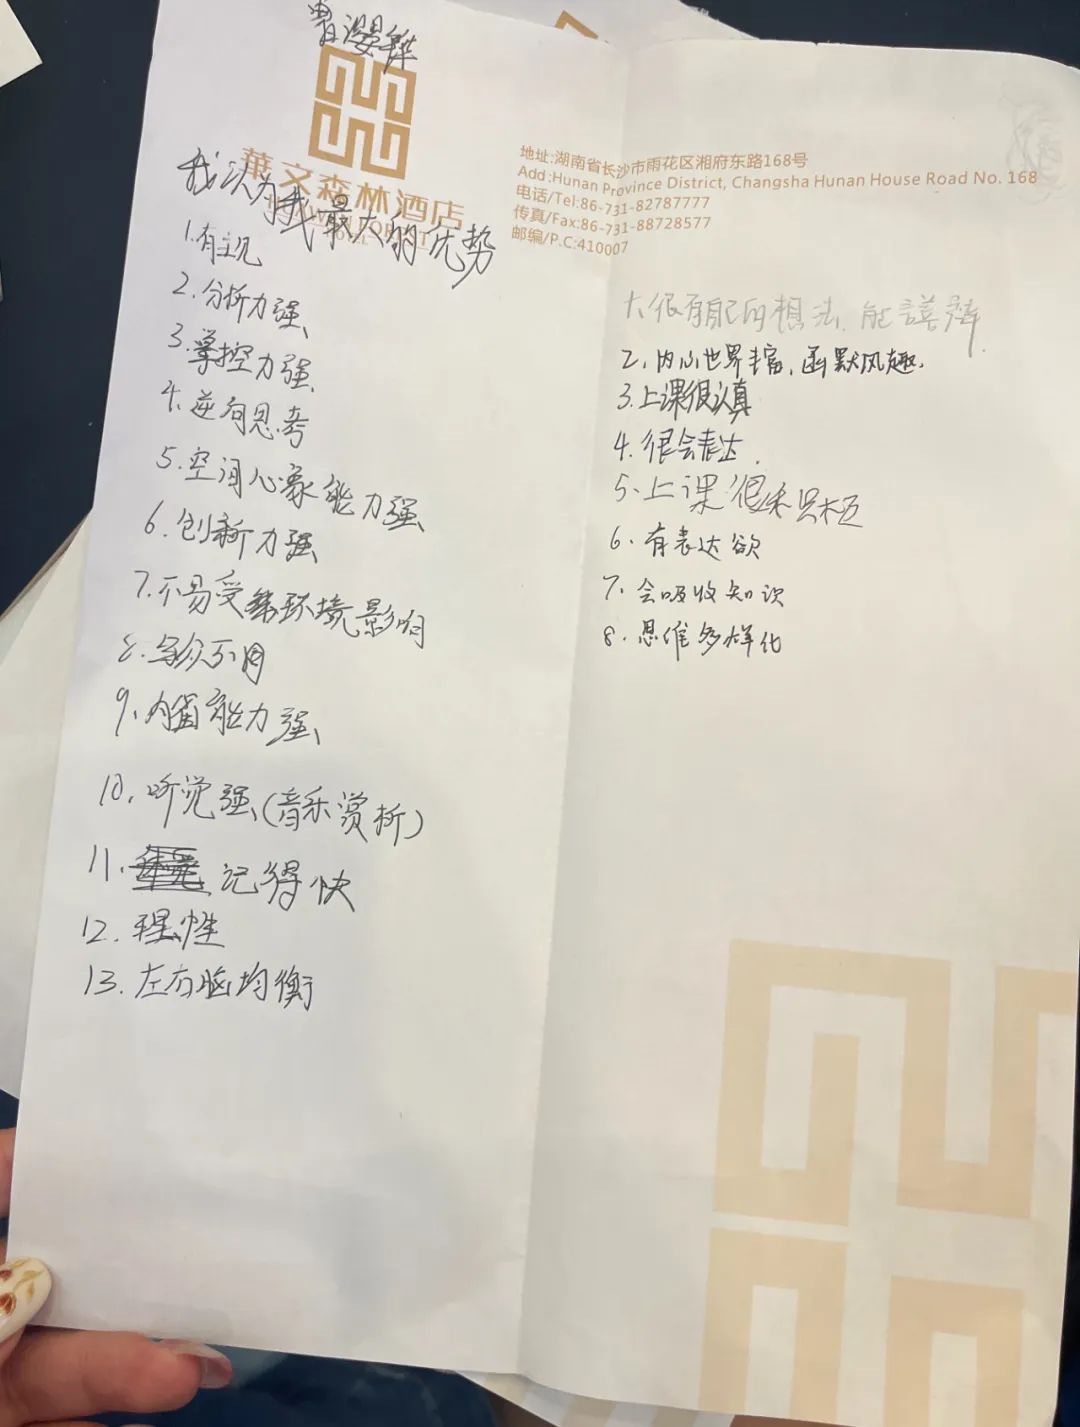 曾
華文森林酒店
HOTEL
我认为我最大的优势
1.有主见
2.分析力强
3.掌控力强
4.逆向思考
5.空间心象能力强
6.创新力强
7.不易受环境影响
8.与众不同
9、内省能力强
10.听觉强(音乐赏析)
11.记得快
12.理性
13.左右脑均衡
地址:湖南省长沙市雨花区湘府东路168号
Add:Hunan Province District, Changsha Hunan House Road No. 168
电话/Tel:86-731-82787777
传真/Fax:86-731-88728577
邮编/P.C:410007
1.很有自己的想法、能言善辩.
2.内心世界丰富,幽默风趣.
3.上课很认真
4.很会表达.
5、上课很积极
6、有表达欲
7、会吸收知识
8.思维多样化